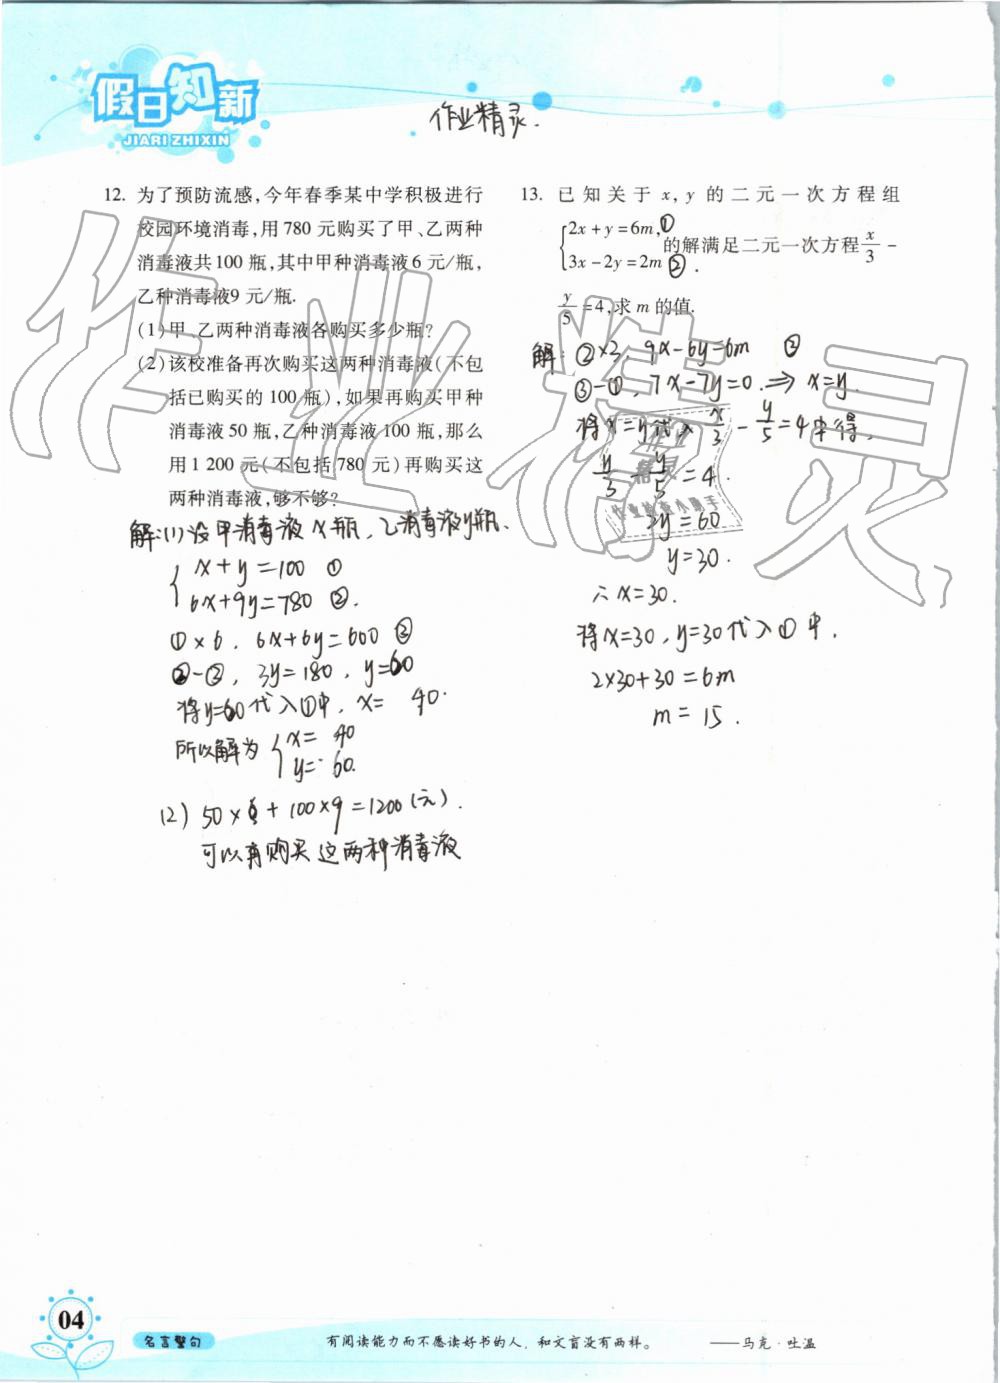 假日知新
JIARI ZHIXIN
作业精灵.
12. 为了预防流感,今年春季某中学积极进行
校园环境消毒,用780元购买了甲、乙两种
消毒液共100瓶,其中甲种消毒液6元/瓶,
乙种消毒液9元/瓶.
(1)甲、乙两种消毒液各购买多少瓶?
(2)该校准备再次购买这两种消毒液(不包
括已购买的100瓶),如果再购买甲种
消毒液50瓶,乙种消毒液100瓶,那么
用1 200元(不包括780元)再购买这
两种消毒液,够不够?
解:(1)设甲消毒液x瓶,乙消毒液y瓶.
x+y=100 ①
6x+9y=780 ②.
①×6, 6x+6y=600 ③
②-③, 3y=180, y=60
将y=60代入①中, x= 40.
所以解为 x= 40
y= 60.
(2) 50×6+100×9=1200(元).
可以再购买这两种消毒液
13. 已知关于x,y的二元一次方程组
2x+y=6m,①
3x-2y=2m ②.
的解满足二元一次方程x/3-
y/5=4,求m的值.
解: ②×3, 9x-6y=6m ③
③-①, 7x-7y=0 ⇒ x=y.
将x=y代入x/3-y/5=4中得,
y/3-y/5=4.
2y=60
y=30.
∴x=30.
将x=30,y=30代入①中.
2×30+30=6m
m=15.
作业精灵
04
名言警句
有阅读能力而不愿读好书的人,和文盲没有两样。
——马克·吐温